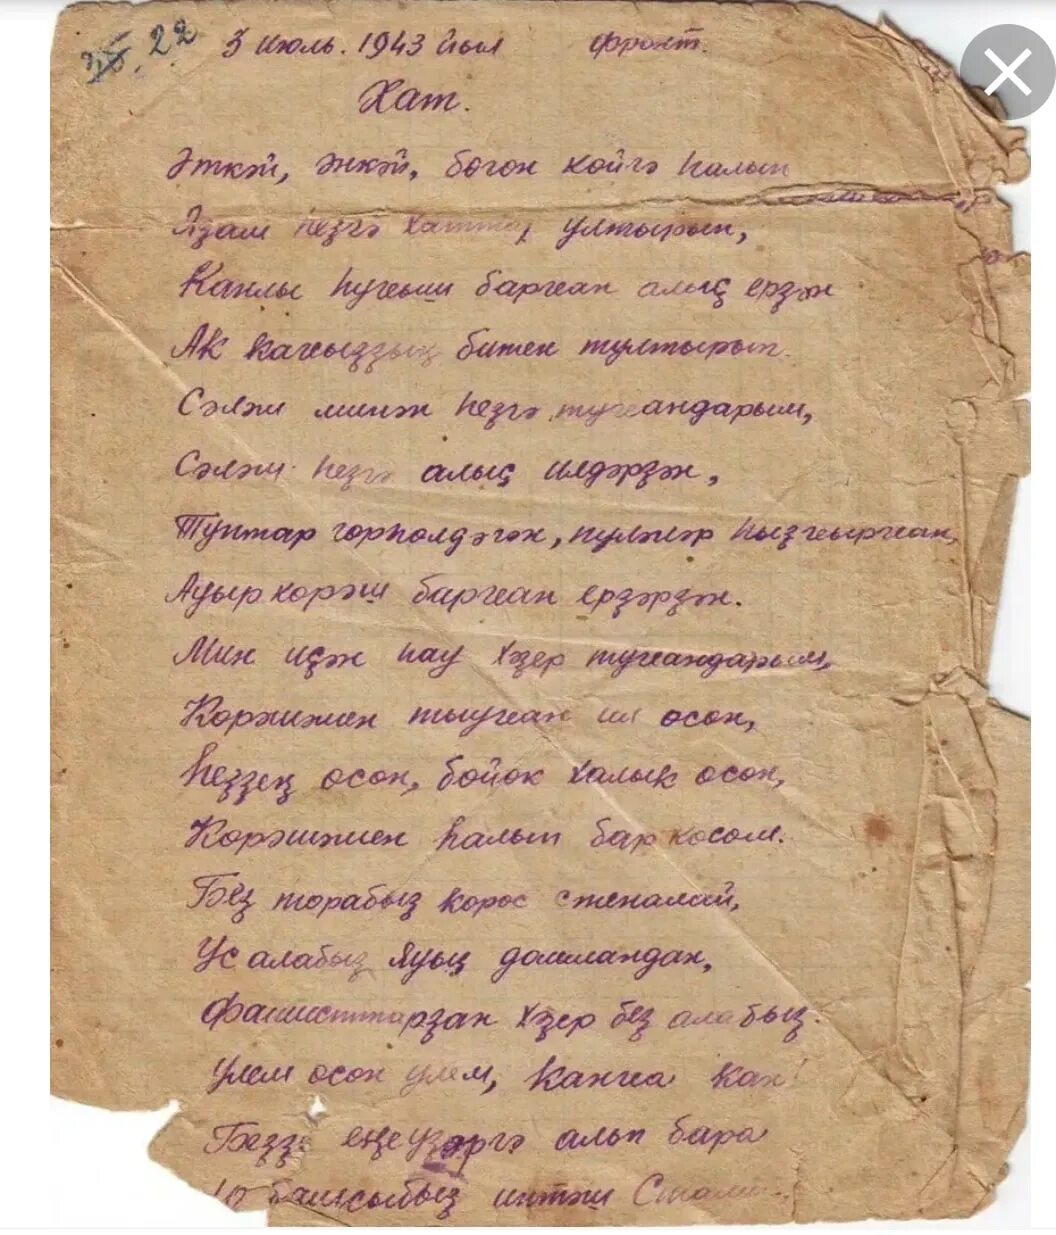 22
3 июль. 1943 йыл фронт.
Хат.
Әткәй, әнкәй, богон көйгә һалып
Яҙам һеҙгә хаттар ултырып,
Канлы һуғыш барған алыҫ ерҙән
Ак кағыҙҙың битен тултырып.
Сәләм минән һеҙгә туғандарым,
Сәләм һеҙгә алыҫ илдәрҙән,
Туптар гөрһөлдәгән, пуләләр һыҙғырған,
Ауыр көрәш барған ерҙәрҙән.
Мин иҫән һау хәҙер туғандарым,
Көрәшәмен тыуған ил өсөн,
Һеҙҙең өсөн, бөйөк халык өсөн,
Көрәшәмен һалып бар көсөм.
Беҙ торабыҙ корос стеналай,
Үс алабыҙ яуыҙ дошмандан,
Фашисттарҙан хәҙер беҙ алабыҙ.
Үлем өсөн үлем, канға кан!
Беҙҙе еңеүҙәргә алып бара
Юлбашсыбыҙ иптәш